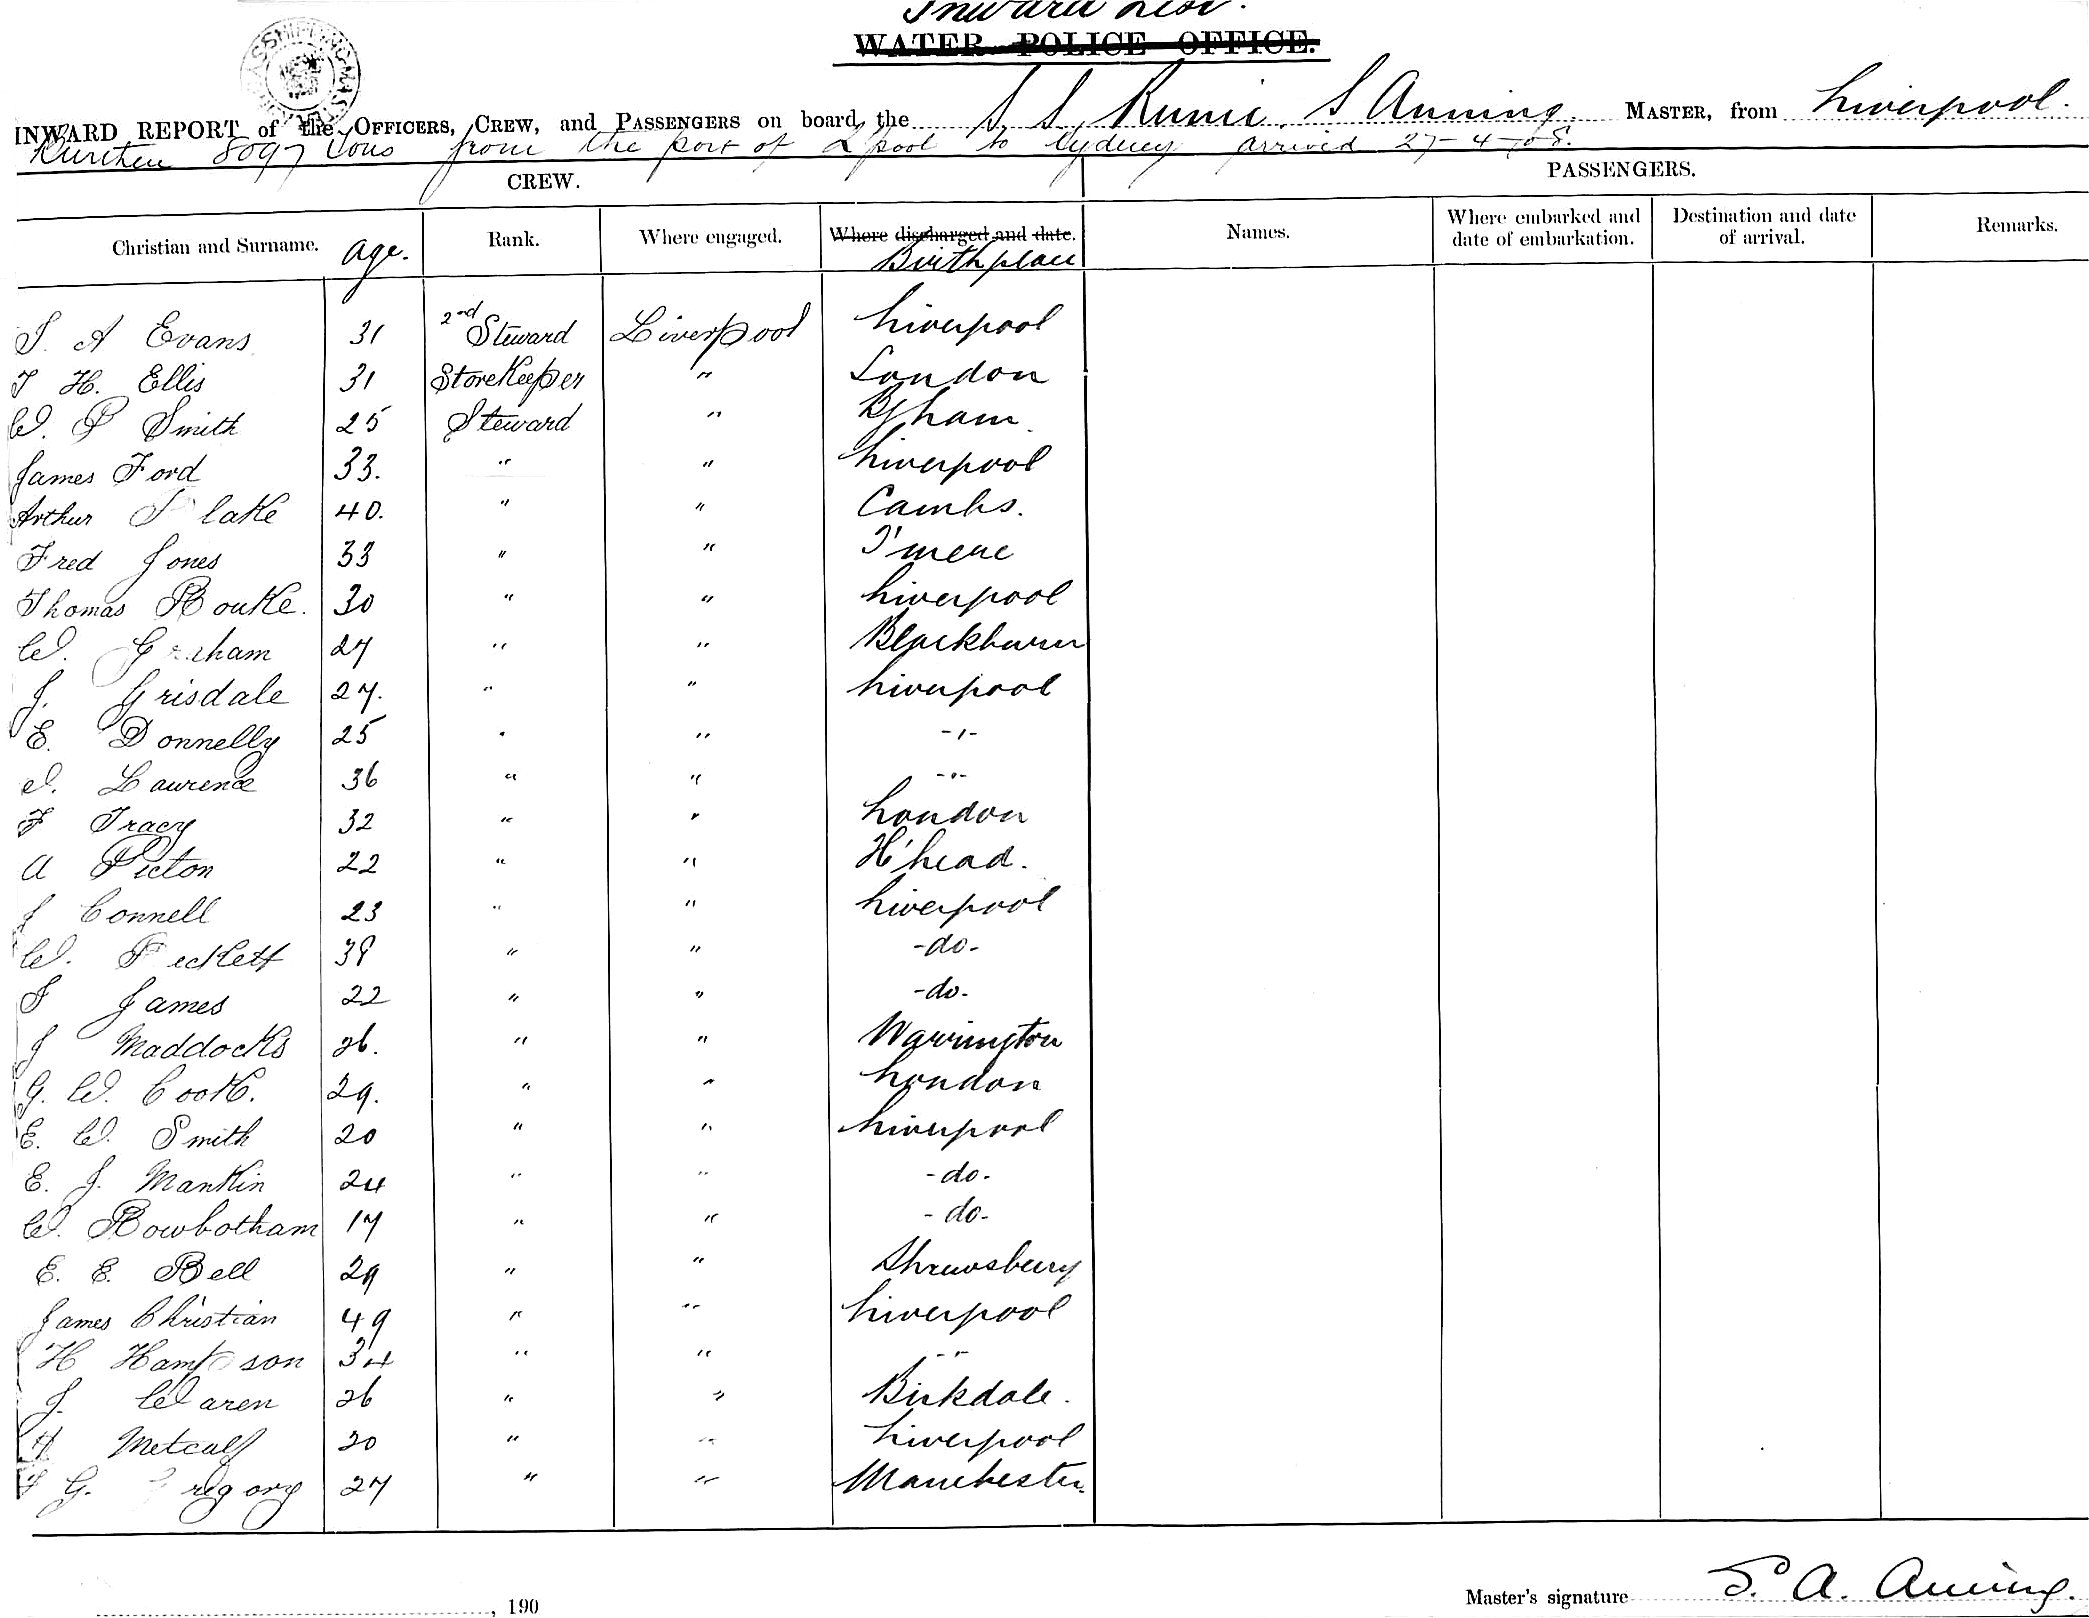 Inward List.
WATER POLICE OFFICE.
INWARD REPORT of the OFFICERS, CREW, and PASSENGERS on board the S. S. Runic. S Anning MASTER, from Liverpool.
Burthen 8097 tons from the port of L'pool to Sydney arrived 27-4-08.
CREW. PASSENGERS.
Christian and Surname. age. Rank. Where engaged. Where discharged and date. Birthplace Names. Where embarked and date of embarkation. Destination and date of arrival. Remarks.
S. A Evans 31 2nd Steward Liverpool Liverpool
T H. Ellis 31 StoreKeeper " London
W. P Smith 25 Steward " B'ham
James Ford 33. " " Liverpool
Arthur lake 40. " " Cambs.
Fred Jones 33 " "
Thomas Rourke. 30 " " Liverpool
W. Graham 27 " " Blackburn
J. Grisdale 27. " " Liverpool
E. Donnelly 25 " " -"-
Lawrence 36 " " -"-
F Tracy 32 " " London
A Picton 22 " " H'head.
J Connell 23 " " Liverpool
W. Peckett 38 " " -do-
S James 22 " " -do-
J Maddocks 26. " " Warrington
G. W. Cook. 29. " " London
E. W. Smith 20 " " Liverpool
E. J. Mankin 24 " " -do-
W. Rowbotham 17 " " -do-
E. E. Bell 29 " " Shrewsbury
James Christian 49 " " Liverpool
H Hampson 34 " " - " -
J. Waren 26 " " Birkdale.
H Metcalf 20 " " Liverpool
T G. Gregory 27 " " Manchester
Master's signature S. A. Anning.
, 190